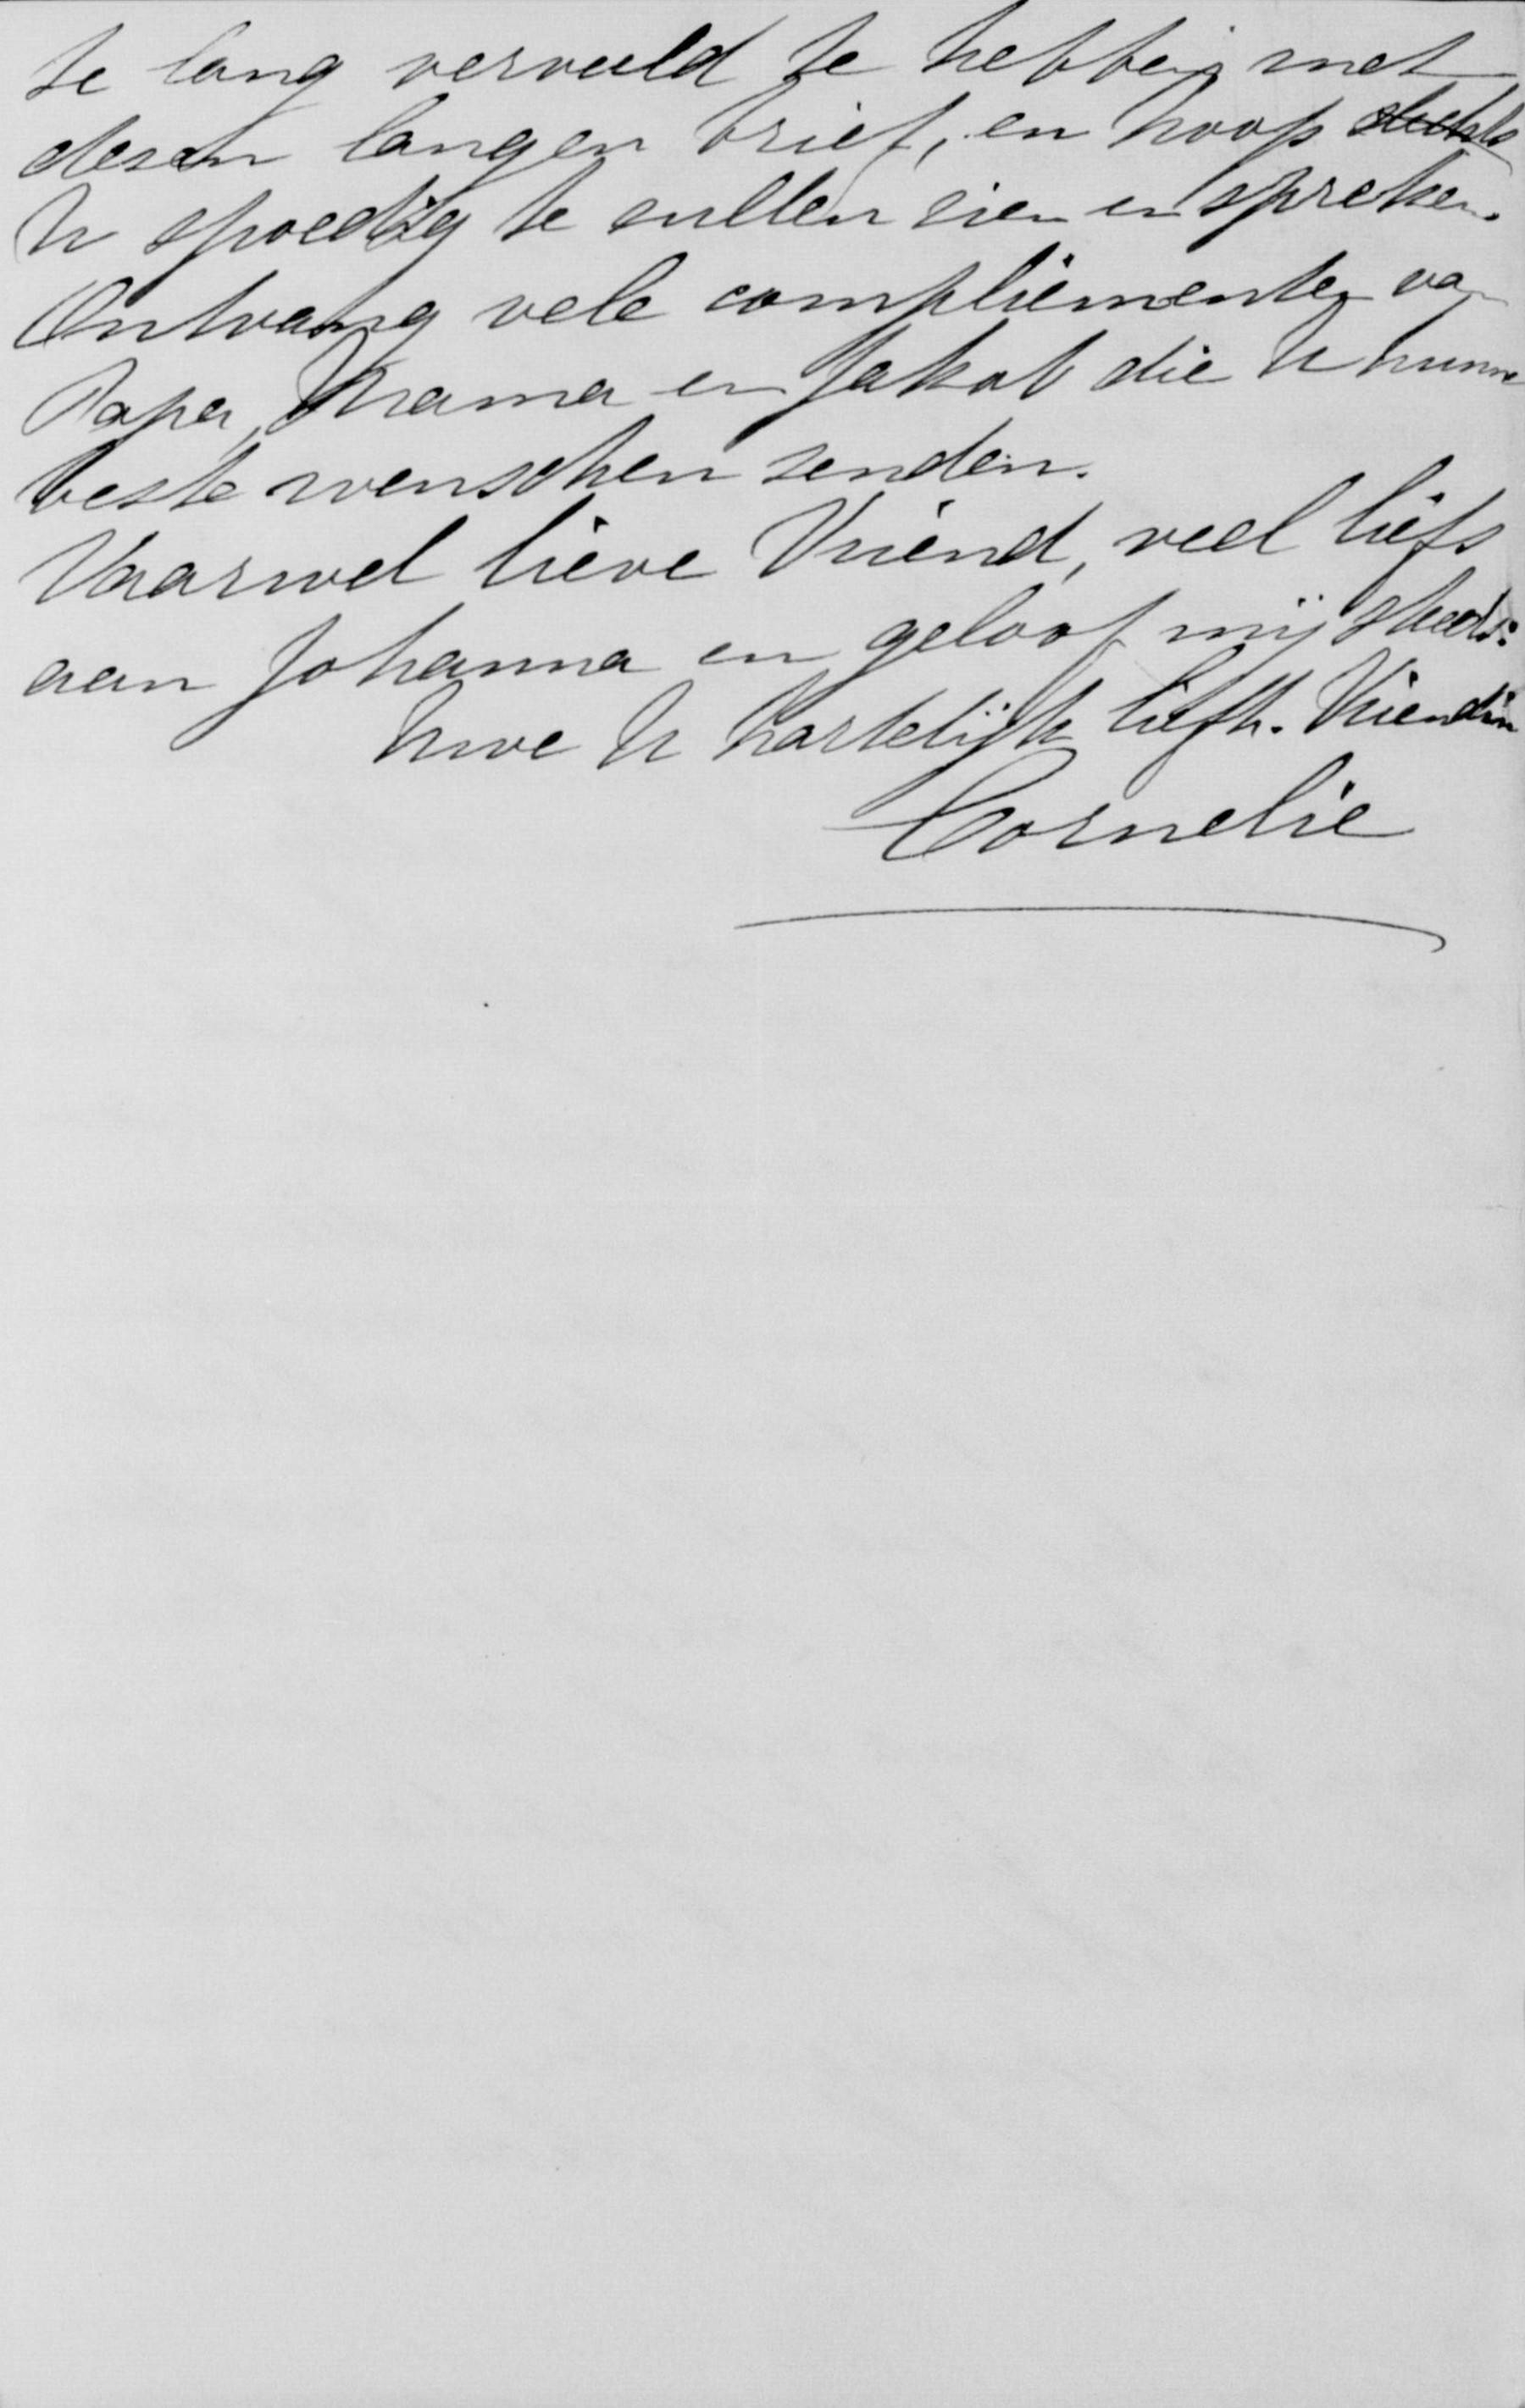 te lang verveeld te hebben met
dezen langen brief, en hoop
U spoedig te zullen zien en spreken.
Ontvang vele complimenten van
Papa, Mama en Jakob die U hunne
beste wenschen zenden.
Vaarwel lieve Vriend, veel liefs
aan Johanna en geloof mij steeds:
Uwe U hartelijk liefh. Vriendin
Cornelie